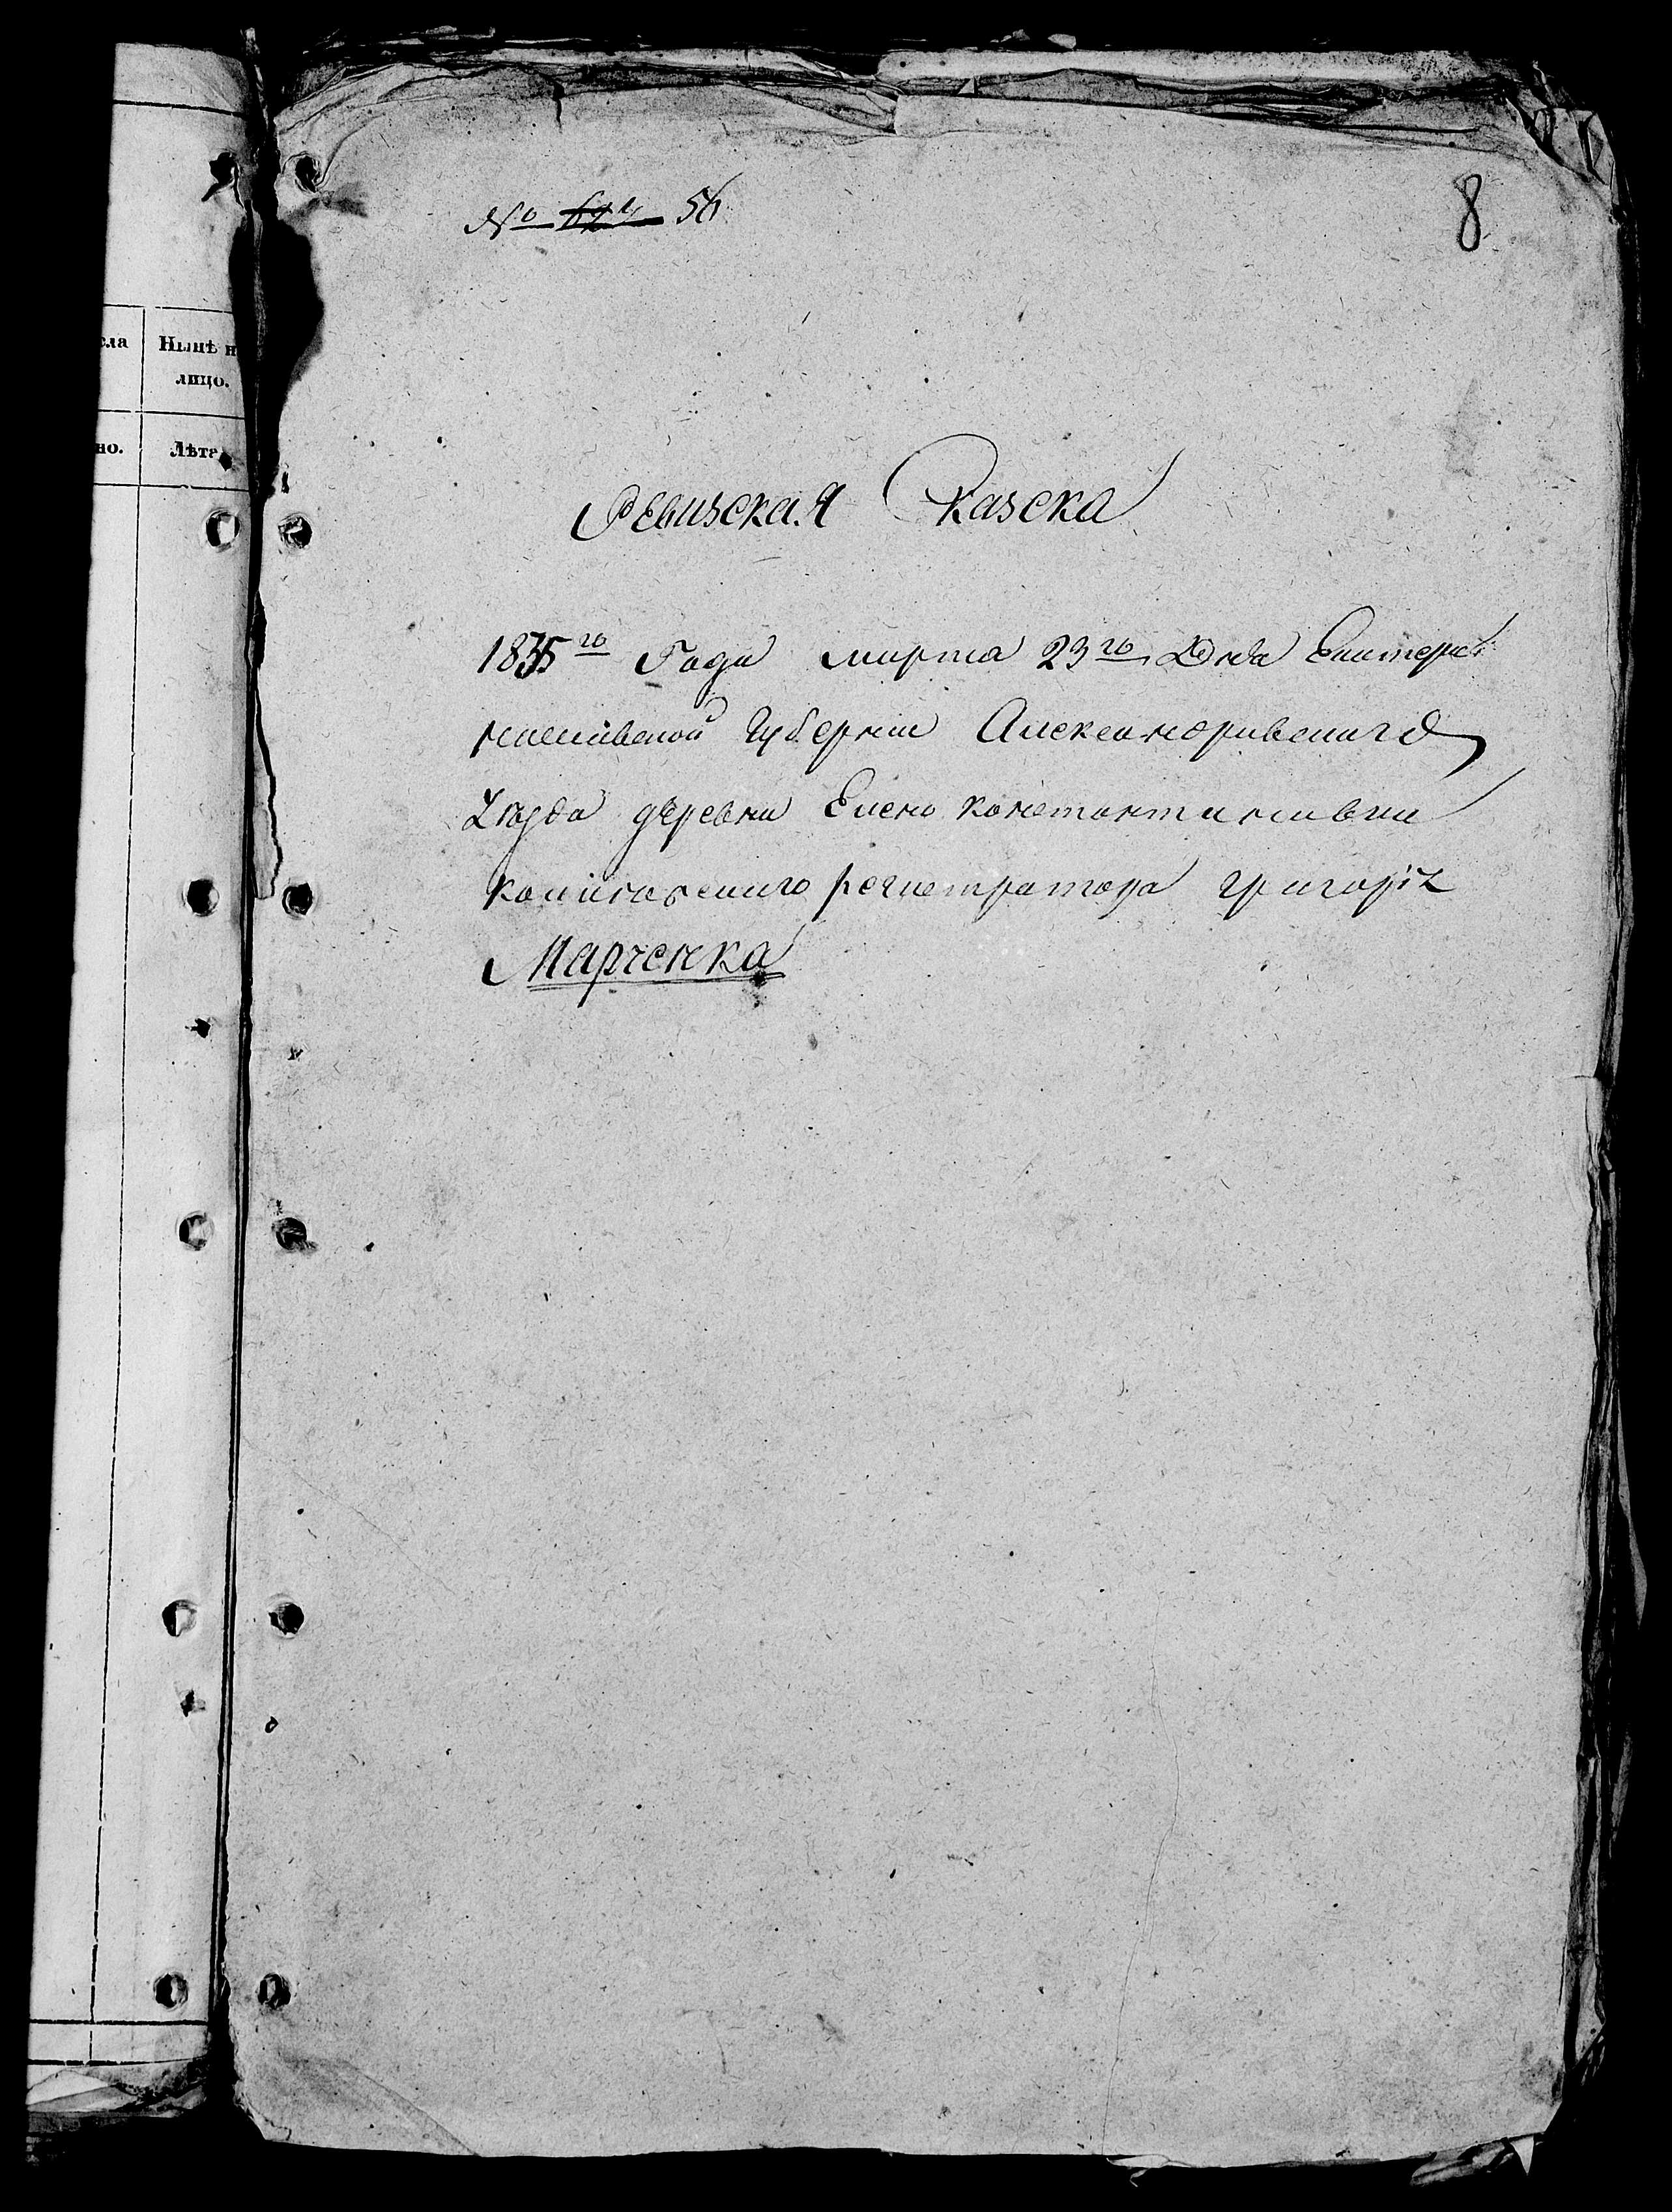 № 56
8
сла
Нынѣ н
лицо.
но.
Лѣта
Ревизская Сказска
1835го Года марта 23го Дня Екатери
нославской Губернии Александривскаго
уезда деревни Елено константиновки
колежскаго регистратора григорія
Марченка